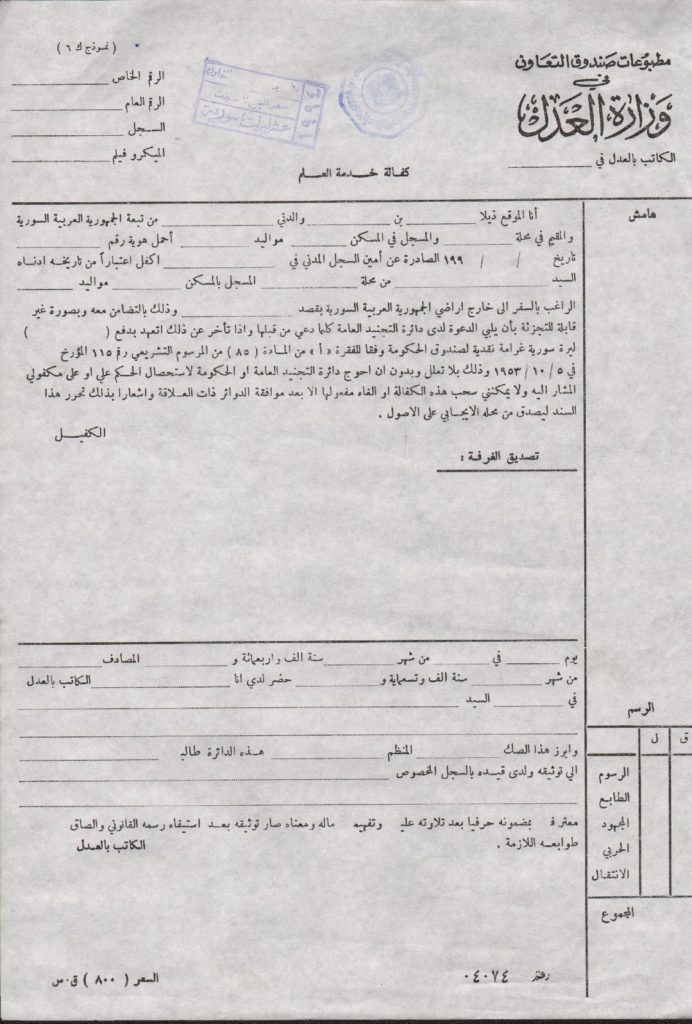 مطبوعات صندوق التعاون
في
وزارة العدل
الكاتب بالعدل في
( نموذج ك ٦ )
الرقم الخاص
الرقم العام
السجل
الميكرو فيلم
عشر ليرات سورية
١٩٩٤
كفالة خدمة العلم
هامش
أنا الموقع ذيلا بن والدتي من تبعة الجمهورية العربية السورية
والمقيم في محلة والمسجل في المسكن مواليد أحمل هوية رقم
تاريخ / / ١٩٩ الصادرة عن أمين السجل المدني في اكفل اعتباراً من تاريخه ادناه
السيد من محلة المسجل بالمسكن مواليد
الراغب بالسفر الى خارج اراضي الجمهورية العربية السورية بقصد وذلك بالتضامن معه وبصورة غير
قابلة للتجزئة بأن يلبي الدعوة لدى دائرة التجنيد العامة كلما دعي من قبلها واذا تأخر عن ذلك اتعهد بدفع ( )
ليرة سورية غرامة نقدية لصندوق الحكومة وفقا للفقرة « أ » من المادة ( ٨٥ ) من المرسوم التشريعي رقم ١١٥ المؤرخ
في ٥ / ١٠ / ١٩٥٣ وذلك بلا تعلل وبدون ان احوج دائرة التجنيد العامة او الحكومة لاستحصال الحكم علي او على مكفولي
المشار اليه ولا يمكنني سحب هذه الكفالة او الغاء مفعولها الا بعد موافقة الدوائر ذات العلاقة واشعارا بذلك تحرر هذا
السند ليصدق من محله الايجابي على الاصول .
الكفيل
تصديق الغرفة :
يوم في من شهر سنة الف واربعمائة و المصادف
من شهر سنة الف وتسعماية و حضر لدي انا الكاتب بالعدل
في السيد
وابرز هذا الصك المنظم هذه الدائرة طالبـ
الي توثيقه ولدى قيده بالسجل المخصوص
معترفـ بمضمونه حرفيا بعد تلاوته عليـ وتفهيمـ ماله ومعناه صار توثيقه بعد استيفاء رسمه القانوني والصاق
طوابعه اللازمة .
الكاتب بالعدل
الرسم
ل ق
الرسوم
الطابع
المجهود
الحربي
الانتقال
المجموع
رقم ٠٤٠٧٤
السعر ( ٨٠٠ ) ق.س